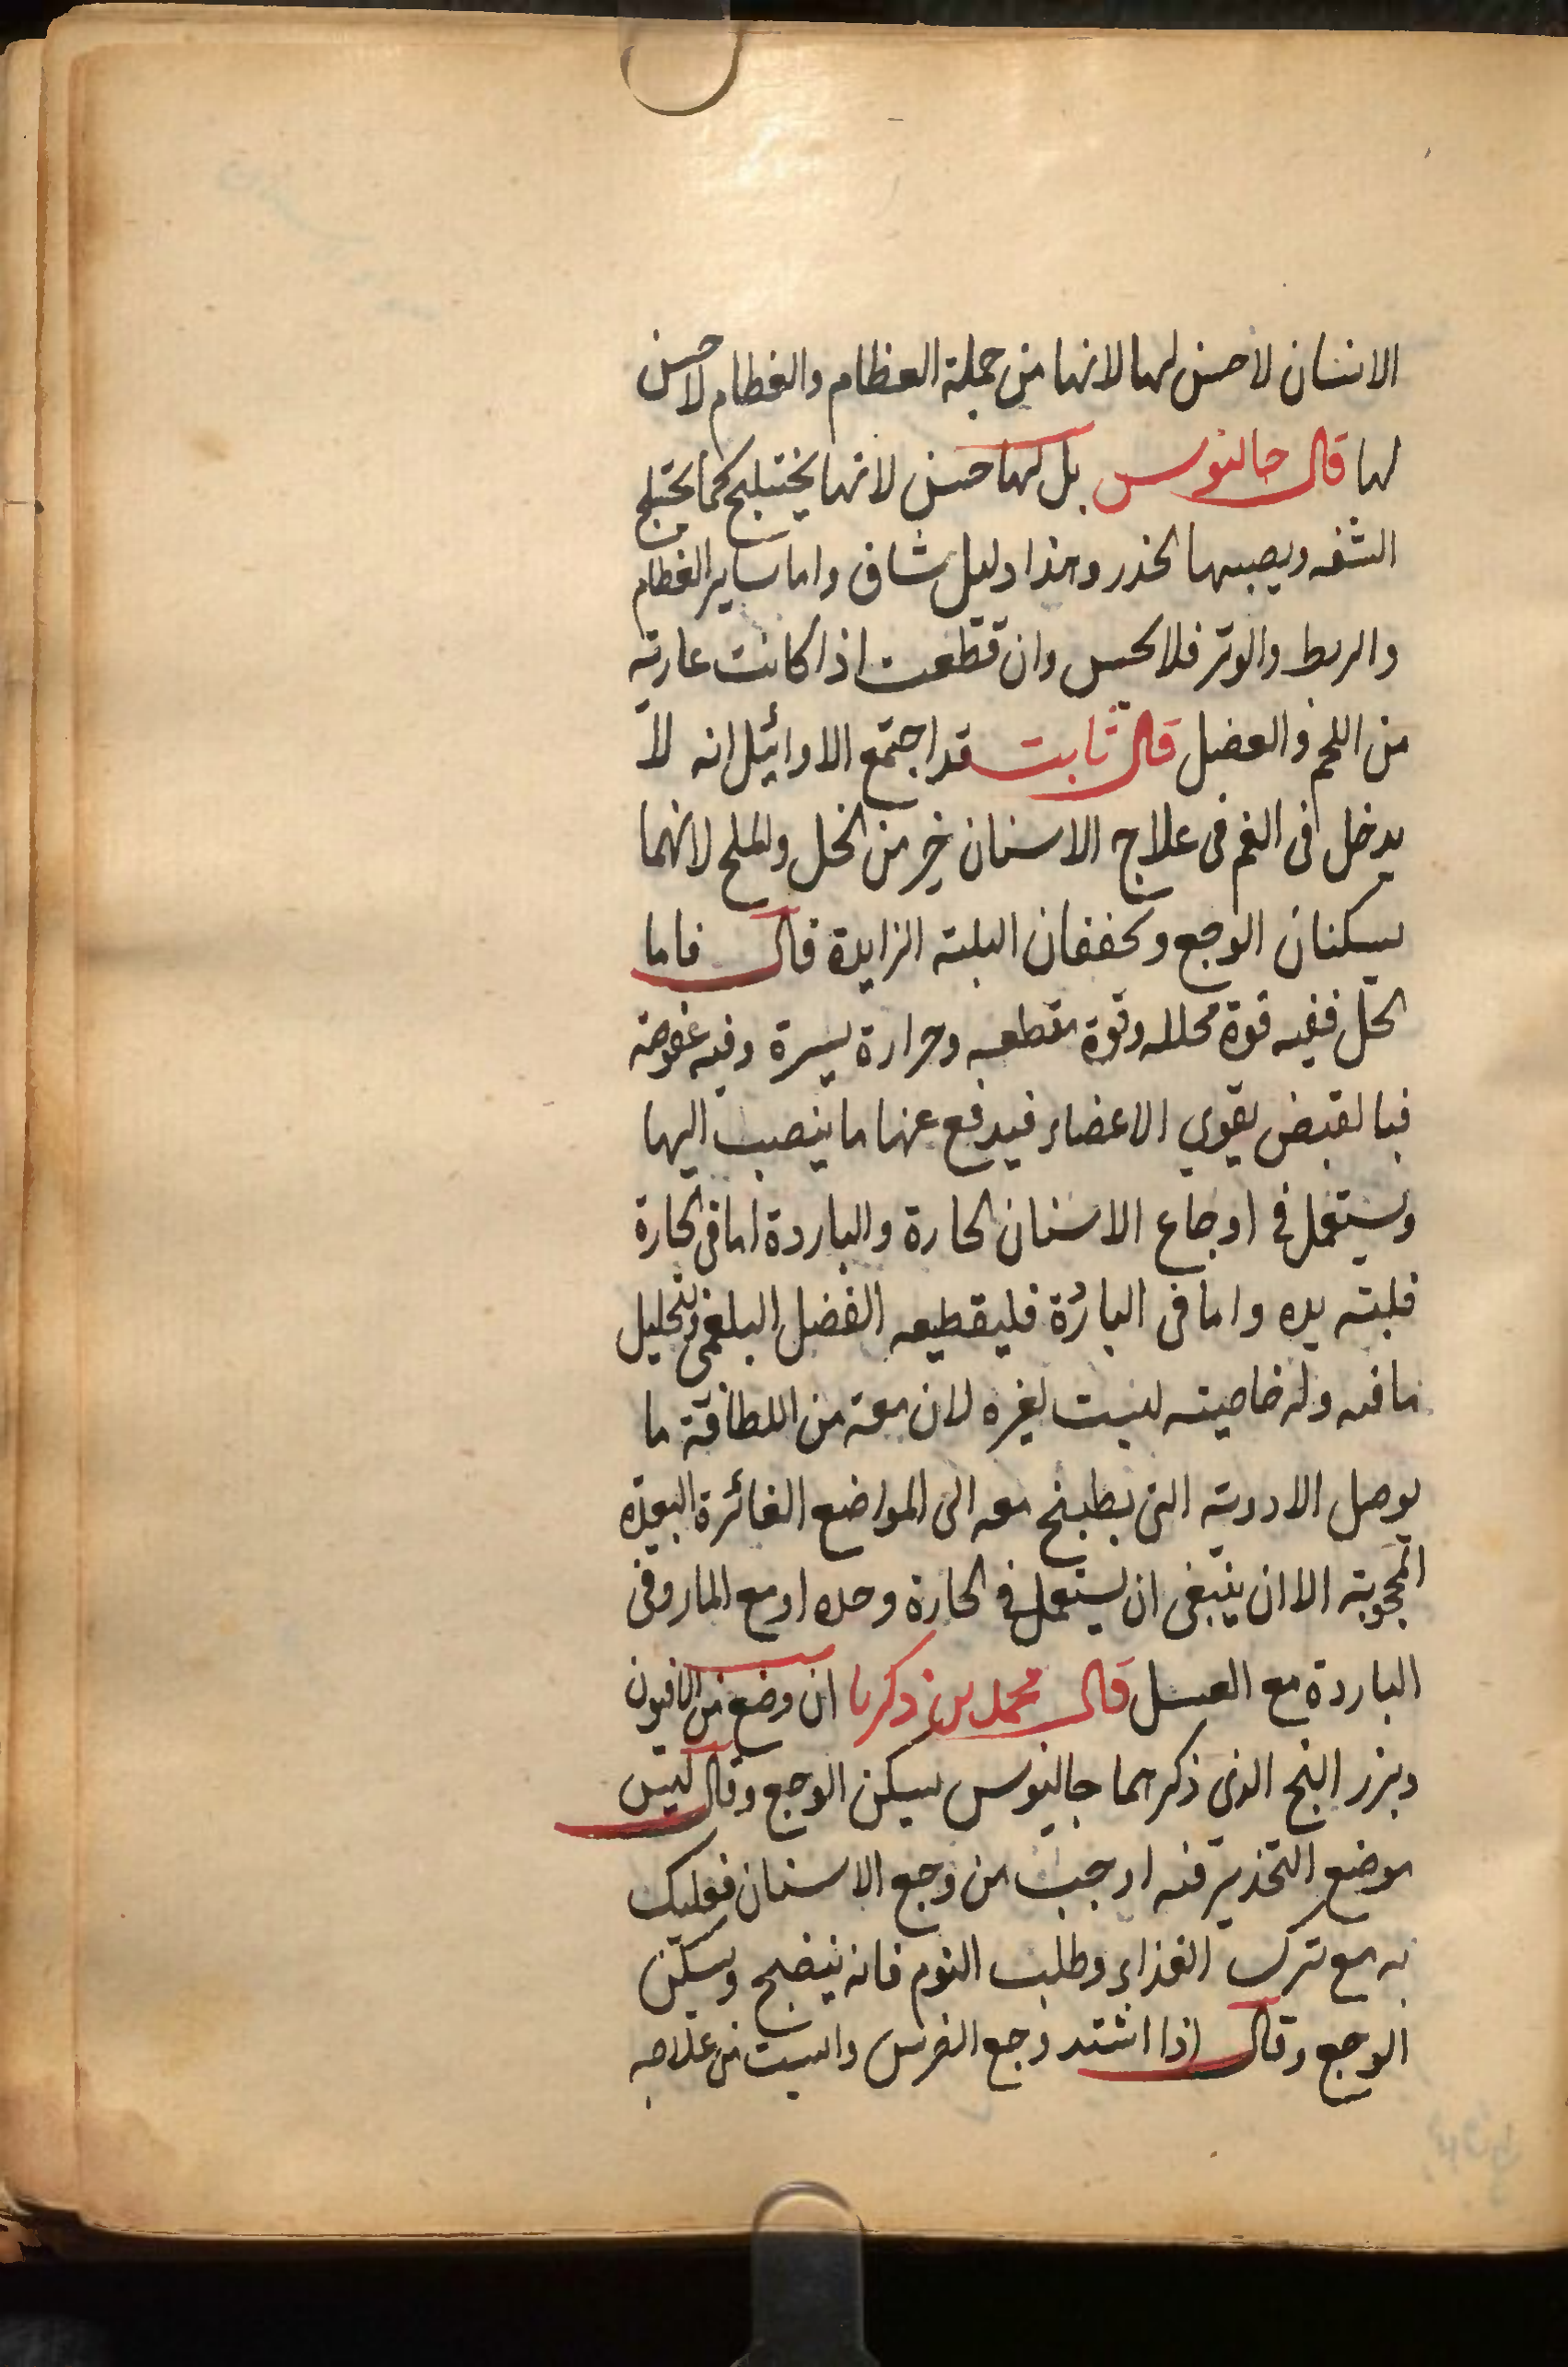 الانسان لاحس لها لانها من جملة العظام والعظام لاحس
لها قال جالينوس بل لها حس لانها يختلج كما يختلج
الشفه ويصيبها الخدر وهذا دليل شاف واما ساير العظام
والربط والوتر فلا يحس وان قطعت اذا كانت عارية
من اللحم والعضل قال ثابت قد اجتمع الاوائيل انه لا
يدخل فى الفم فى علاج الاسنان خير من الخل والملح لانهما
يسكنان الوجع ويجففان البلة الزايدة قال فاما
الخل ففيه قوة محلله وقوة مقطعه وحرارة يسيرة وفيه عفوصة
فبالقبض يقوي الاعضاء فيدفع عنها ما ينصب اليها
ويستعمل فى اوجاع الاسنان الحارة والباردة اما فى الحارة
فلتبريده واما فى الباردة فليقطيعه الفضل البلغمى وتحليل
ما فيه وله خاصية ليست لغيره لان معه من اللطافة ما
يوصل الادوية التى يطبخ معه الى المواضع الغائرة البعيدة
المحجوبة الا ان ينبغى ان يستعمل فى الحارة وحده او مع الماء وفى
الباردة مع العسل قال محمد بن زكريا ان وضع من الافيون
وبزر البنج الذى ذكرهما جالينوس يسكن الوجع وقال ليس
موضع التخدير فيه اوجب من وجع الاسنان فعليك
به مع ترك الغذاء وطلب النوم فانه ينضج ويسكن
الوجع وقال اذا اشتد وجع الضرس وايست من علاجه